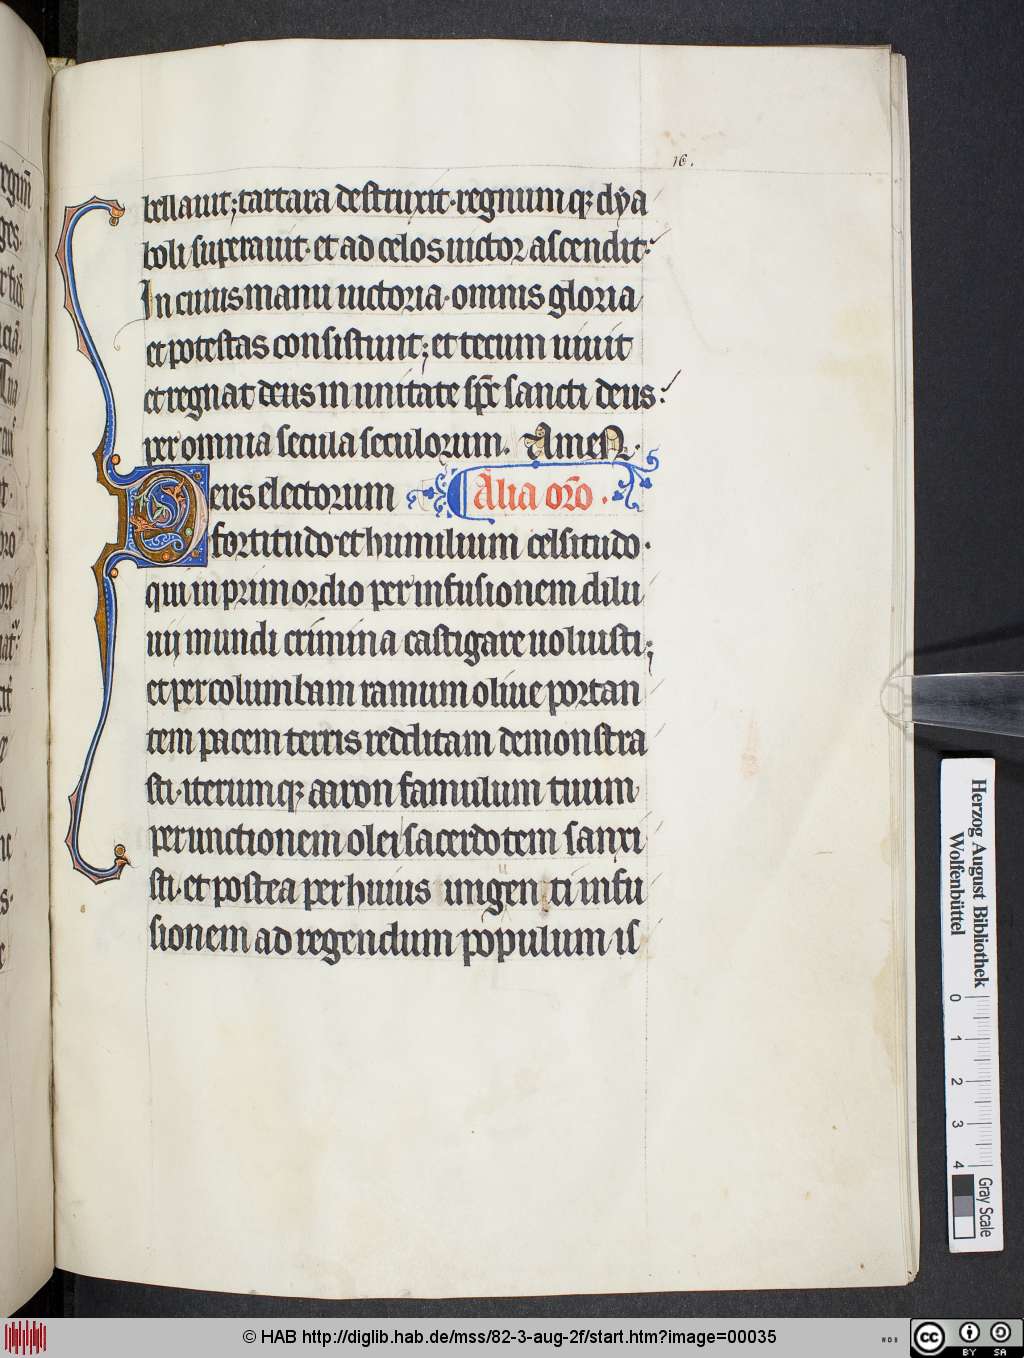 16.
bellauit; tartara destruxit· regnum qꝫ dya
boli superauit· et ad celos uictor ascendit·
In cuius manu uictoria· omnis gloria
et potestas consistunt; et tecum uiuit
et regnat deus in unitate sp̄c sancti deus·
per omnia secula seculorum. Amen·
Deus electorum Alia or̄o.
fortitudo· et humilium celsitudo·
qui in primordio per infusionem dilu
uij mundi crimina castigare uoluisti;
et per columbam ramum oliue portan
tem pacem terris redditam demonstra
sti· iterumqꝫ aaron famulum tuum
per unctionem olei sacerdotem sanxi
sti· et postea per huius ungenti infu
sionem ad regendum populum is
Herzog August Bibliothek
Wolfenbüttel
0 1 2 3 4
Gray Scale
© HAB http://diglib.hab.de/mss/82-3-aug-2f/start.htm?image=00035
WDB
cc BY SA